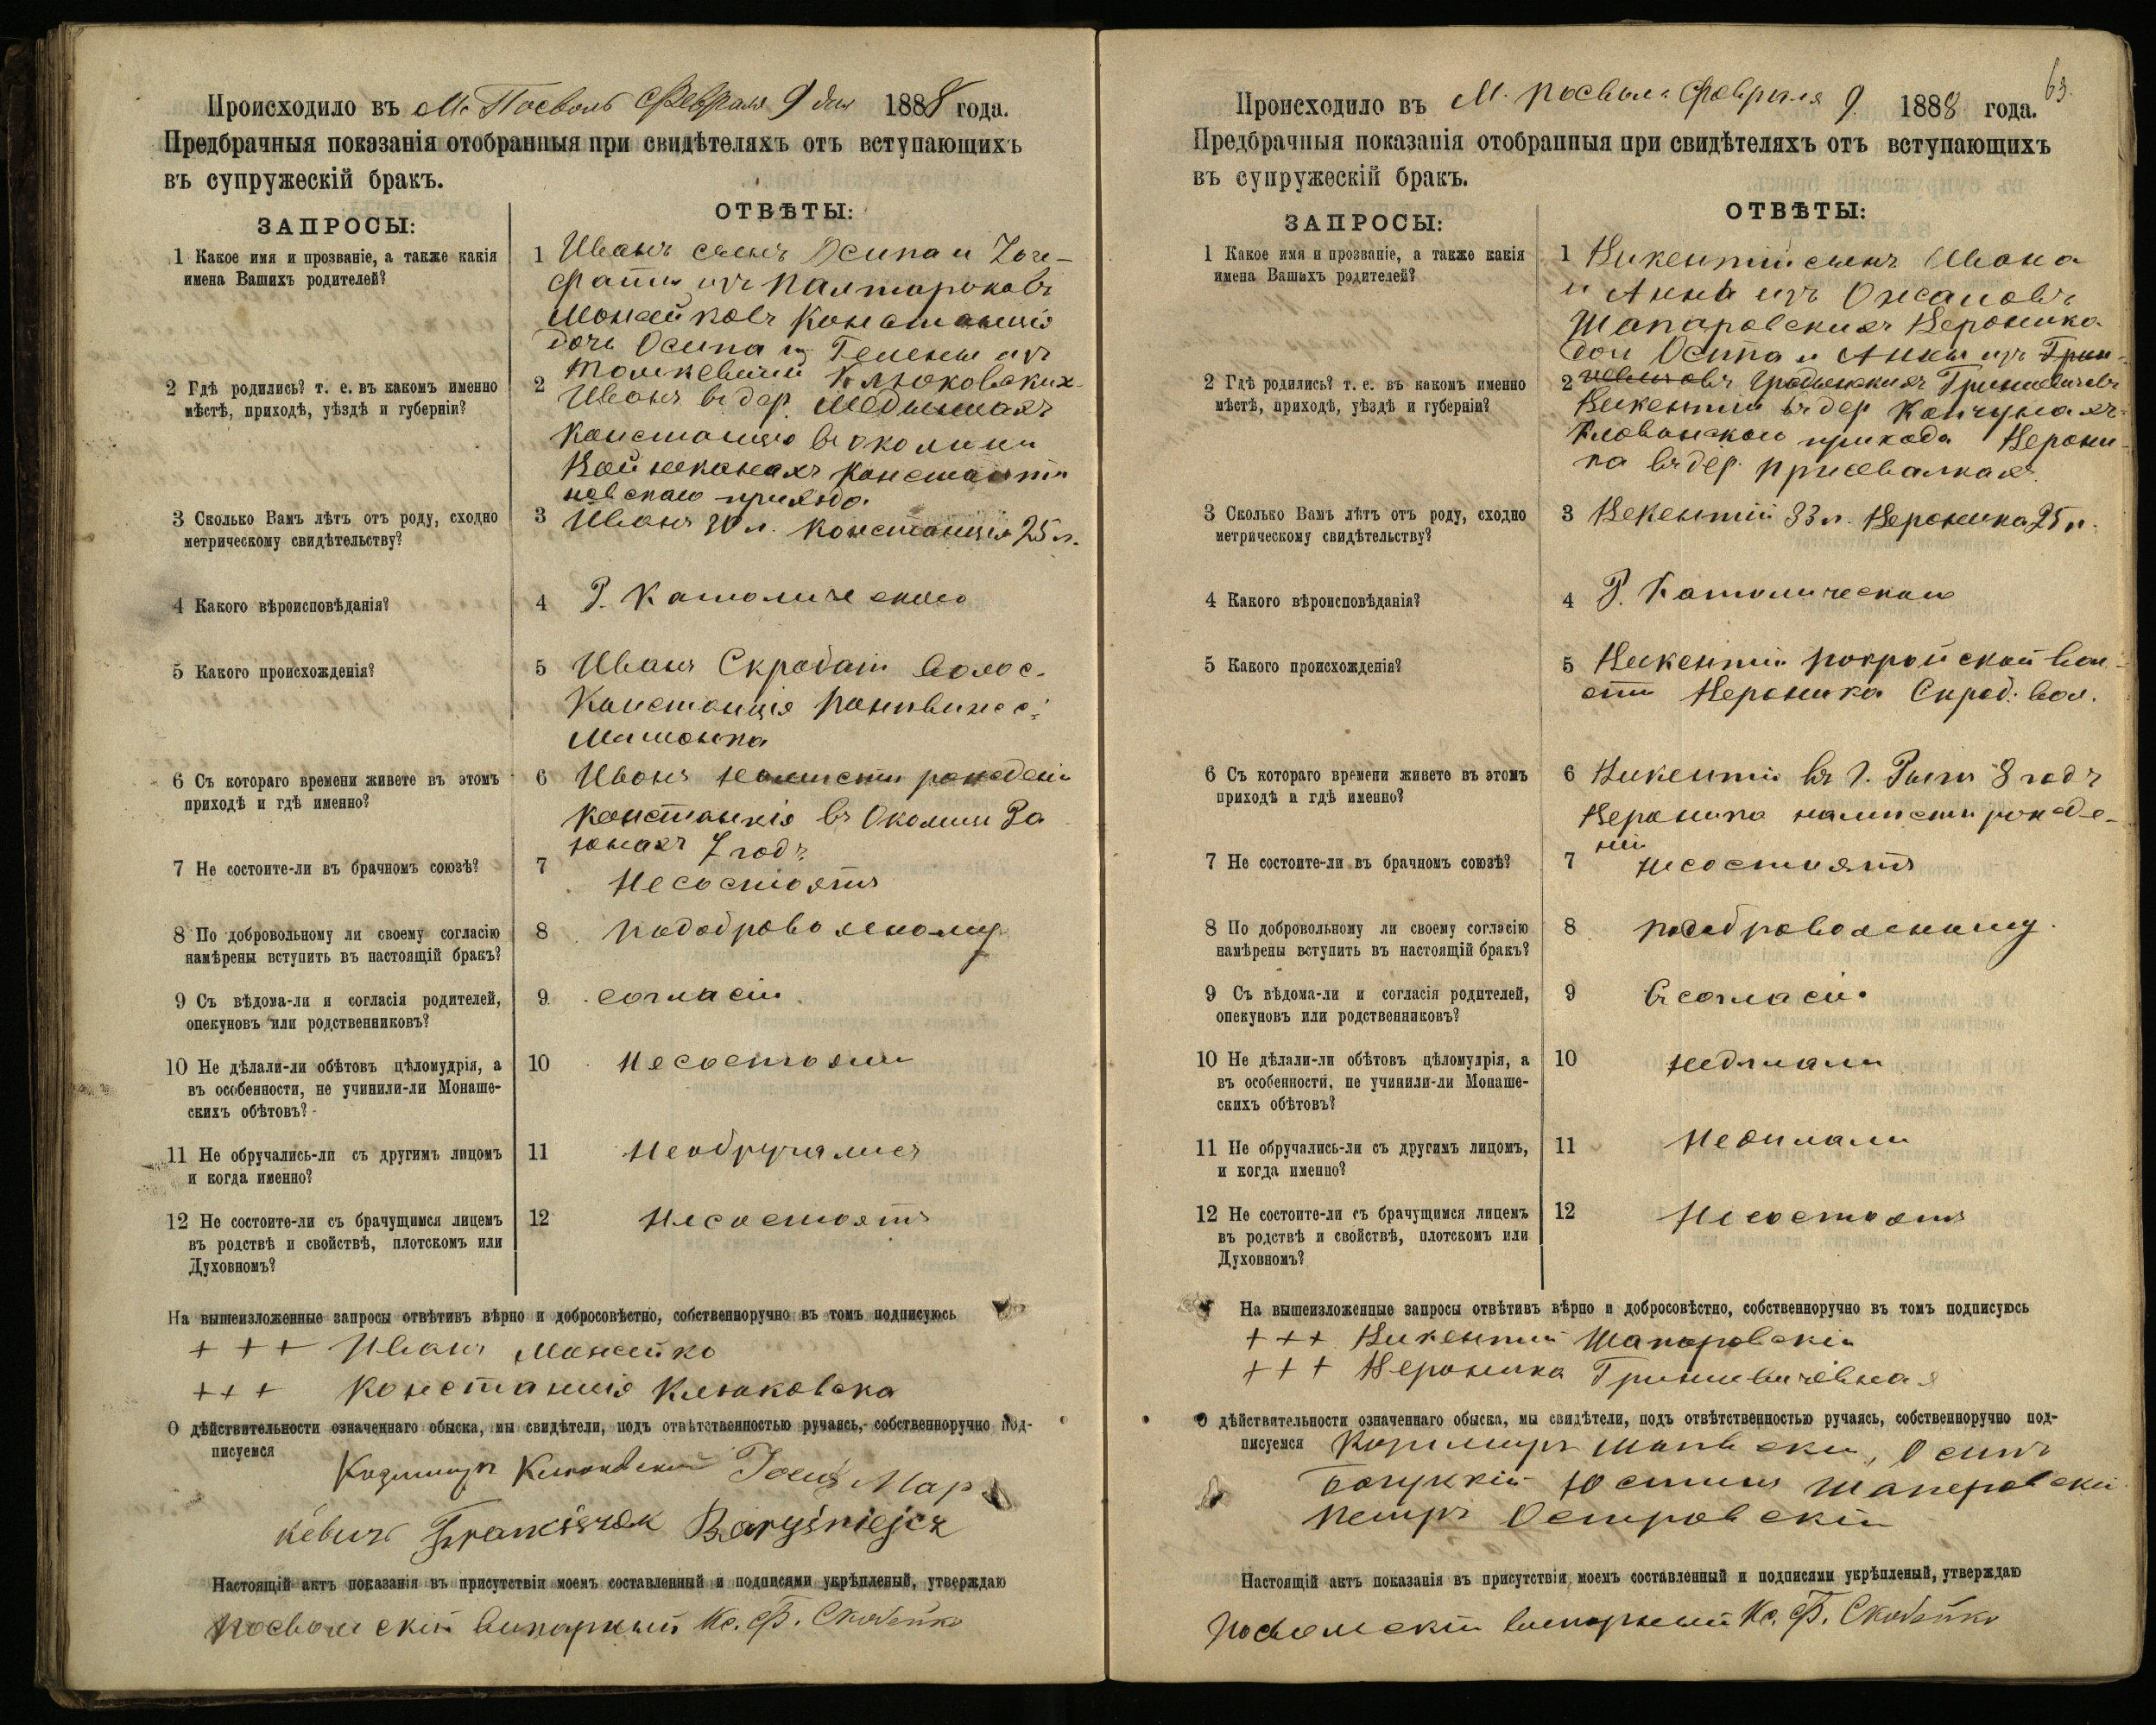 Происходило въ М. Посволь Февраля 9 дня 1888 года.
Предбрачныя показанія отобранныя при свидѣтеляхъ отъ вступающихъ
въ супружескій бракъ.
ЗАПРОСЫ:
ОТВѢТЫ:
1 Какое имя и прозваніе, а также какія
имена Вашихъ родителей?
1 Иванъ сынъ Осипа и
изъ
Констанція
дочь Осипа и Гелены изъ
Клюковскихъ
2 Гдѣ родились? т. е. въ какомъ именно
мѣстѣ, приходѣ, уѣздѣ и губерніи?
2 Иванъ въ дер.
Констанція въ околици
Константи
новскаго прихода
3 Сколько Вамъ лѣтъ отъ роду, сходно
метрическому свидѣтельству?
3 Иванъ 30 л. Констанція 25 л.
4 Какого вѣроисповѣданія?
4 Р. Католическаго
5 Какого происхожденія?
5 Иванъ Скробatin волос.
Констанція
Мѣщанка
6 Съ котораго времени живете въ этомъ
приходѣ и гдѣ именно?
6 Иванъ
Констанція въ Околици
7 годъ
7 Не состоите-ли въ брачномъ союзѣ?
7 Несостоятъ
8 По добровольному ли своему согласію
намѣрены вступить въ настоящій бракъ?
8 Подобровольному
9 Съ вѣдома-ли и согласія родителей,
опекуновъ или родственниковъ?
9 согласіи
10 Не дѣлали-ли обѣтовъ цѣломудрія, а
въ особенности, не учинили-ли Монаше-
скихъ обѣтовъ?
10 Несостояли
11 Не обручались-ли съ другимъ лицомъ
и когда именно?
11 Необручались
12 Не состоите-ли съ брачущимся лицемъ
въ родствѣ и свойствѣ, плотскомъ или
Духовномъ?
12 Несостоятъ
На вышеизложенные запросы отвѣтивъ вѣрно и добросовѣстно, собственноручно въ томъ подписуюсь
+ + + Иванъ Монейко
+ + + Констанція Клюковска
О дѣйствительности означеннаго обыска, мы свидѣтели, подъ отвѣтственностью ручаясь, собственноручно под-
писуемся
Казимиръ Клюковскій Мар
кевичъ Franciszek
Настоящій актъ показанія въ присутствіи моемъ составленный и подписями укрѣпленый, утверждаю
Посвольскій викарный Кс. Ф. Скобейко
63.
Происходило въ М. Посволь Февраля 9. 1888 года.
Предбрачныя показанія отобранныя при свидѣтеляхъ отъ вступающихъ
въ супружескій бракъ.
ЗАПРОСЫ:
ОТВѢТЫ:
1 Какое имя и прозваніе, а также какія
имена Вашихъ родителей?
1 Викентій сынъ Ивана
и Анны изъ
Шапаровскихъ Вероника
доч Осипа и Анны изъ
Гриневичевъ
2 Гдѣ родились? т. е. въ какомъ именно
мѣстѣ, приходѣ, уѣздѣ и губерніи?
2 Викентій въ дер.
прихода Верони-
ка въ дер.
3 Сколько Вамъ лѣтъ отъ роду, сходно
метрическому свидѣтельству?
3 Викентій 33 л. Вероника 25 л.
4 Какого вѣроисповѣданія?
4 Р. Католическаго
5 Какого происхожденія?
5 Викентій Покройской вол-
ости Вероника Скроб. вол.
6 Съ котораго времени живете въ этомъ
приходѣ и гдѣ именно?
6 Викентій въ г. Риги 8 годъ
Вероника на мѣсти рожде-
ніи
7 Не состоите-ли въ брачномъ союзѣ?
7 Несостоятъ
8 По добровольному ли своему согласію
намѣрены вступить въ настоящій бракъ?
8 Подобровольному.
9 Съ вѣдома-ли и согласія родителей,
опекуновъ или родственниковъ?
9 Въ согласіи
10 Не дѣлали-ли обѣтовъ цѣломудрія, а
въ особенности, не учинили-ли Монаше-
скихъ обѣтовъ?
10 Недѣлали
11 Не обручались-ли съ другимъ лицомъ,
и когда именно?
11
12 Не состоите-ли съ брачущимся лицемъ
въ родствѣ и свойствѣ, плотскомъ или
Духовномъ?
12 Несостоятъ
На вышеизложенные запросы отвѣтивъ вѣрно и добросовѣстно, собственноручно въ томъ подписуюсь
+ + + Викентій Шапоровскій
+ + + Вероника Гриневичевная
О дѣйствительности означеннаго обыска, мы свидѣтели, подъ отвѣтственностью ручаясь, собственноручно под-
писуемся Осипъ
Богуцкій Юстинъ Шапоровскій
Петръ Островскій
Настоящій актъ показанія въ присутствіи моемъ составленный и подписями укрѣпленый, утверждаю
Посвольскій викарный Кс. Ф. Скобейко